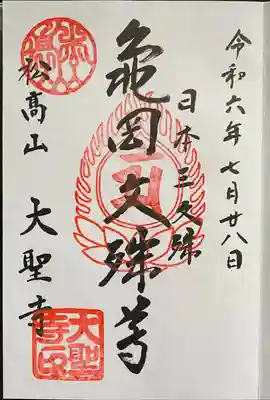 令和六年七月廿八日
日本三文殊
亀岡文殊尊
松高山 大聖寺
大聖
寺印